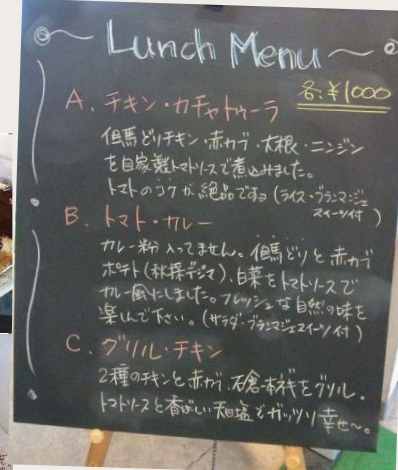 Lunch Menu
各:¥1000
A. チキン・カチャトゥーラ
但馬どりチキン・赤カブ・大根・ニンジン
を自家製トマトソースで煮込みました。
トマトのコクが絶品ですョ(ライス・ブランマンジェ
スイーツ付)
B. トマト・カレー
カレー粉入ってません。但馬どりと赤カブ
ポテト(秋採デジマ)、白菜をトマトソースで
カレー風にしました。フレッシュな自然の味を
楽しんで下さい。(サラダ・ブランマンジェスイーツ付)
C. グリル・チキン
2種のチキンと赤カブ、岩倉ネギをグリル・
トマトソースと香ばしい天日塩でガッツリ幸せ〜。